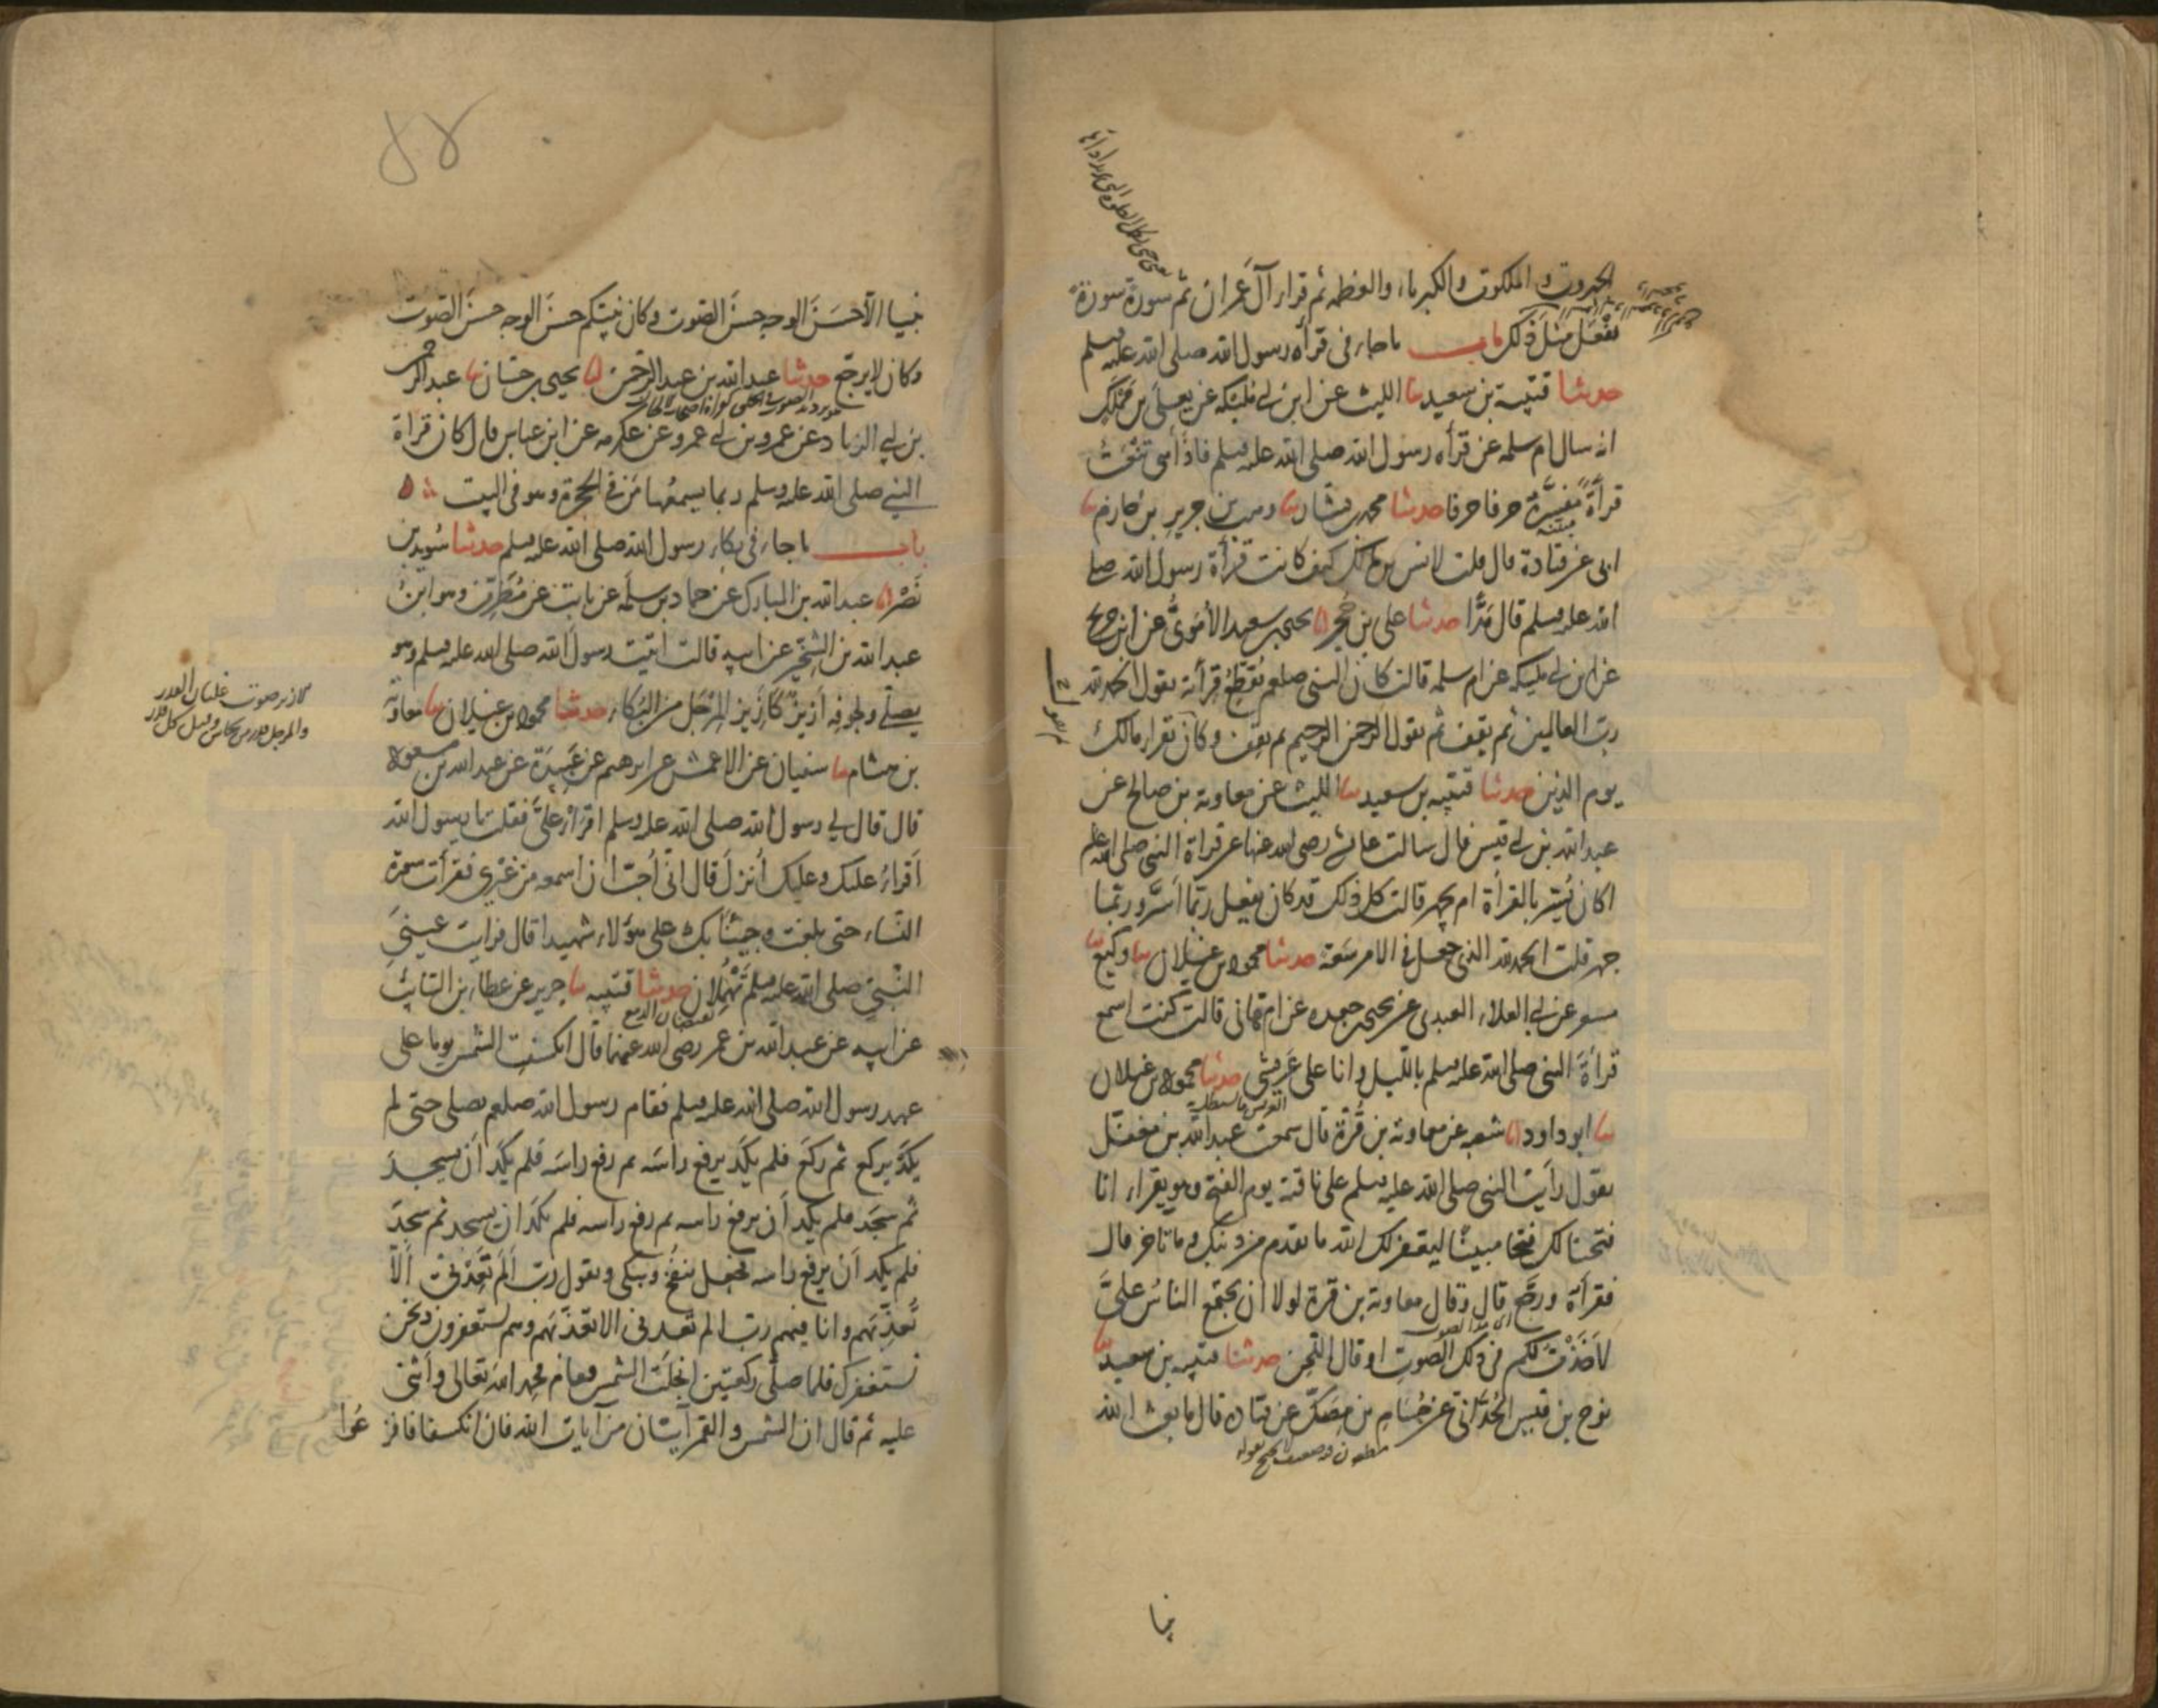 الجبروت والملكوت والكبرياء والعظمه ثم قرا ال عمران ثم سورة سورة
يفعل مثل ذلك باب ما جاء فى قراه رسول الله صلى الله عليه وسلم
حدثنا قتيبة بن سعيد ثنا الليث عن ابن ابى مليكه عن يعلى بن مملك
انه سال ام سلمه عن قرأه رسول الله صلى الله عليه وسلم فاذا هى تنعت
قرأة مفسرة حرفا حرفا حدثنا محمد بن بشار ثنا وهب بن جرير بن حازم ثنا
ابى عن قتادة قال قلت لانس بن مالك كيف كانت قرأة رسول الله صلى
الله عليه وسلم قال مدا حدثنا على بن حجر انا يحيى بن سعيد الاموى عن ابن جريج
عن ابن ابى مليكه عن ام سلمه قالت كان النبى صلعم يقطع قرأته يقول الحمد لله
رب العالمين ثم يقف ثم يقول الرحمن الرحيم ثم يقف وكان يقرا مالك
يوم الدين حدثنا قتيبه بن سعيد ثنا الليث عن معاوية بن صالح عن
عبد الله بن ابى قيس قال سالت عائشه رضى الله عنها عن قراة النبى صلى الله عليه
اكان يسر بالقرأة ام يجهر قالت كل ذلك قد كان يفعل ربما اسر وربما
جهر قلت الحمد لله الذى جعل فى الامر سعة حدثنا محمود بن غيلان ثنا وكيع ثنا
مسعر عن ابى العلاء العبدى عن يحيى بن جعده عن ام هانى قالت كنت اسمع
قرأة النبى صلى الله عليه وسلم بالليل وانا على عريشى حدثنا محمود بن غيلان
ثنا ابو داود انا شعبه عن معاوية بن قرة قال سمعت عبد الله بن مغفل
يقول رأيت النبى صلى الله عليه وسلم على ناقته يوم الفتح وهو يقرا انا
فتحنا لك فتحا مبينا ليغفر لك الله ما تقدم من ذنبك وما تاخر قال
فقرأه ورجع قال وقال معاوية بن قرة لولا ان يجتمع الناس على
لاخذت لكم فى ذلك الصوت او قال اللحن حدثنا قتيبه بن سعيد ثنا
نوح بن قيس الحدانى عن حسام بن مصك عن قتاده قال ما بعث الله
نبيا
نبيا الا حسن الوجه حسن الصوت وكان نبيكم حسن الوجه حسن الصوت
وكان لا يرجع حدثنا عبد الله بن عبد الرحمن انا يحيى بن حسان ثنا عبد الرحمن
بن ابى الزناد عن عمرو بن ابى عمرو عن عكرمه عن ابن عباس قال كان قراة
النبى صلى الله عليه وسلم ربما يسمعها من فى الحجرة وهو فى البيت
باب ما جاء فى بكاء رسول الله صلى الله عليه وسلم حدثنا سويد بن
نصر انا عبد الله بن المبارك عن حماد بن سلمه عن ثابت عن مطرف وهو ابن
عبد الله بن الشخير عن ابيه قالت اتيت رسول الله صلى الله عليه وسلم وهو
يصلى ولجوفه ازيز كازيز المرجل من البكاء حدثنا محمود بن غيلان ثنا معاوية
بن هشام ثنا سفيان عن الاعمش عن ابرهيم عن عبيدة عن عبد الله بن مسعود
قال قال لى رسول الله صلى الله عليه وسلم اقرا على فقلت يا رسول الله
اقراء عليك وعليك انزل قال انى احب ان اسمعه من غيرى فقرأت سورة
النساء حتى بلغت وجيئنا بك على هؤلاء شهيدا قال فرايت عينى
النبى صلى الله عليه وسلم تهملان حدثنا قتيبه ثنا جرير عن عطاء بن السائب
عن ابيه عن عبد الله بن عمر رضى الله عنهما قال انكسفت الشمس يوما على
عهد رسول الله صلى الله عليه وسلم فقام رسول الله صلعم يصلى حتى لم
يكد يركع ثم ركع فلم يكد يرفع راسه ثم رفع راسه فلم يكد ان يسجد
ثم سجد فلم يكد ان يرفع راسه ثم رفع راسه فلم يكد ان يسجد ثم سجد
فلم يكد ان يرفع راسه فجعل ينفخ ويبكى ويقول رب الم تعدنى الا
تعذبهم وانا فيهم رب الم تعدنى الا تعذبهم وهم يستغفرون ونحن
نستغفرك فلما صلى ركعتين انجلت الشمس فقام فحمد الله تعالى واثنى
عليه ثم قال ان الشمس والقمر آيتان من آيات الله فان انكسفا فافزعوا